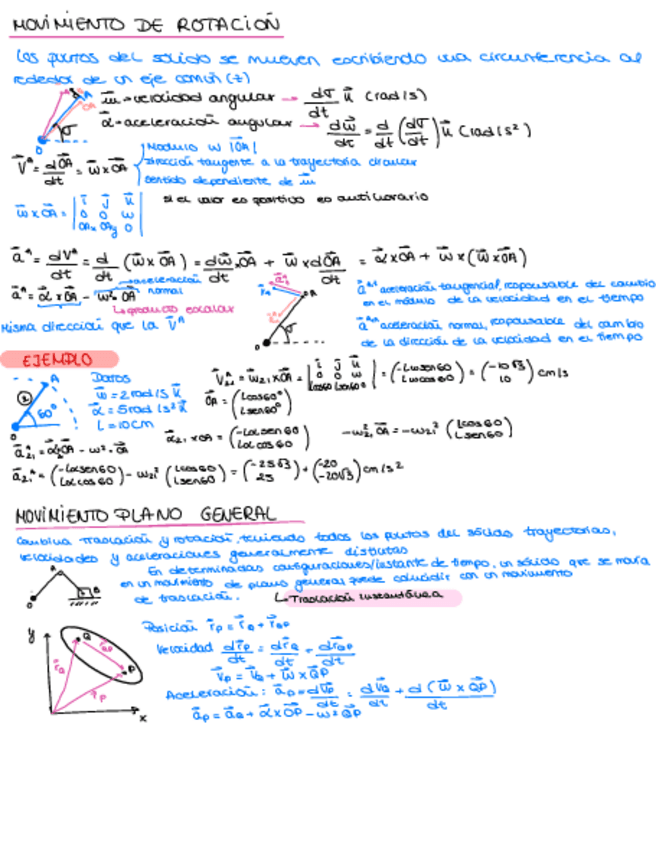 MOVIMIENTO DE ROTACIÓN
Los puntos del sólido se mueven escribiendo una circunferencia al
rededor de un eje común (z)
A
σ
O
ω⃗ → velocidad angular → dσ/dt u⃗ (rad/s)
α⃗ → aceleración angular → dω⃗/dt = d/dt (dσ/dt) u⃗ (rad/s²)
V⃗ᴬ = dOA/dt = ω⃗ x OA⃗
Modulo ω |OA|
Dirección tangente a la trayectoria circular
Sentido dependiente de ω⃗
ω⃗ x OA⃗ = | i j k ; 0 0 ω ; OAx OAy 0 |
si el valor es positivo es antihorario
a⃗ᴬ = dVᴬ/dt = d/dt (ω⃗ x OA⃗) = dω⃗/dt OA⃗ + ω⃗ x dOA⃗/dt = α⃗ x OA⃗ + ω⃗ x (ω⃗ x OA⃗)
a⃗ᴬ = α⃗ x OA⃗ - ω² OA⃗
→ aceleración normal
↳ producto escalar
Misma dirección que la V⃗ᴬ
A
σ
O
a⃗ᴬᵗ aceleración tangencial, responsable del cambio
en el módulo de la velocidad en el tiempo
a⃗ᴬⁿ aceleración normal, responsable del cambio
de la dirección de la velocidad en el tiempo
EJEMPLO
A
2
60°
O
Datos
ω⃗ = 2 rad/s k⃗
α⃗ = 5 rad/s² k⃗
L = 10 cm
V⃗₂₁ᴬ = ω₂₁ x OA⃗ = | i j k ; 0 0 ω ; Lcos60 Lsen60 0 | = (-Lωsen60 ; Lωcos60) = (-10√3 ; 10) cm/s
OA⃗ = (Lcos60° ; Lsen60°)
a⃗₂₁ᴬ = α⃗ OA⃗ - ω² · OA⃗
α₂₁ x OA = (-Lαsen60 ; Lαcos60)
-ω²₂₁ OA⃗ = -ω₂₁² (Lcos60 ; Lsen60)
a⃗₂₁ᴬ = (-Lαsen60 ; Lαcos60) - ω₂₁² (Lcos60 ; Lsen60) = (-25√3 ; 25) + (-20 ; -20√3) cm/s²
MOVIMIENTO PLANO GENERAL
Combina traslación y rotación, teniendo todos los puntos del sólido trayectorias,
velocidades y aceleraciones generalmente distintas
En determinadas configuraciones/instante de tiempo, un sólido que se movía
en un movimiento de plano general puede coincidir con un movimiento
de traslación. ↳ Traslación instantánea
A
B
O
y
x
Q
P
r⃗Q
r⃗P
Posición r⃗P = r⃗Q + r⃗QP
Velocidad dr⃗P/dt = dr⃗Q/dt + dr⃗QP/dt
V⃗P = V⃗Q + ω⃗ x QP⃗
Aceleración: a⃗P = dV⃗P/dt = dV⃗Q/dt + d(ω⃗ x QP⃗)/dt
a⃗P = a⃗Q + α⃗ x QP⃗ - ω² QP⃗